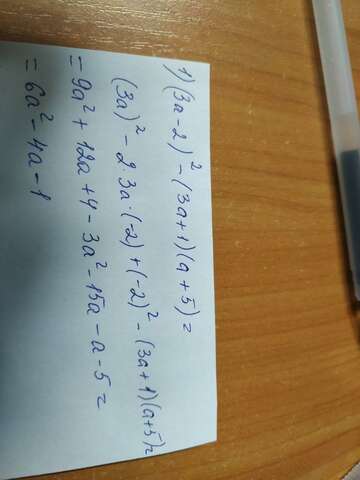 1) (3a-2)² - (3a+1)(a+5) =
(3a)² - 2·3a·(-2) + (-2)² - (3a+1)(a+5) =
= 9a² + 12a + 4 - 3a² - 15a - a - 5 =
= 6a² - 4a - 1